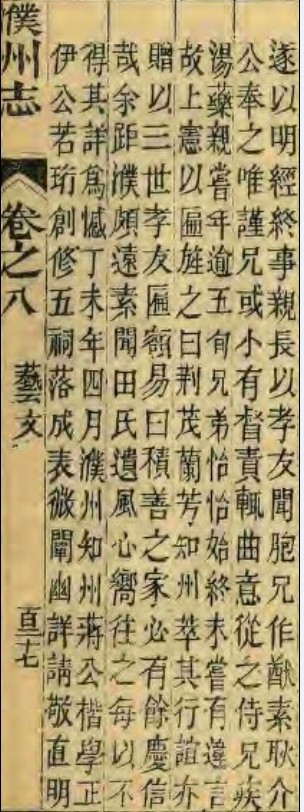 遂以明經終事親長以孝友聞胞兄作猷素耿介
公奉之唯謹兄或小有督責輒曲意從之侍兄疾
湯藥親嘗年逾五旬兄弟怡怡始終未嘗有違言
故上憲以匾旌之曰荆茂蘭芳知州萃其行誼亦
贈以三世孝友匾額易曰積善之家必有餘慶信
哉余距濮頗遠素聞田氏遺風心嚮往之每以不
得其詳爲憾丁未年四月濮州知州蔣公楷學正
伊公若珩創修五祠落成表微闡幽詳請敬直明
濮州志 卷之八 藝文 百三十七